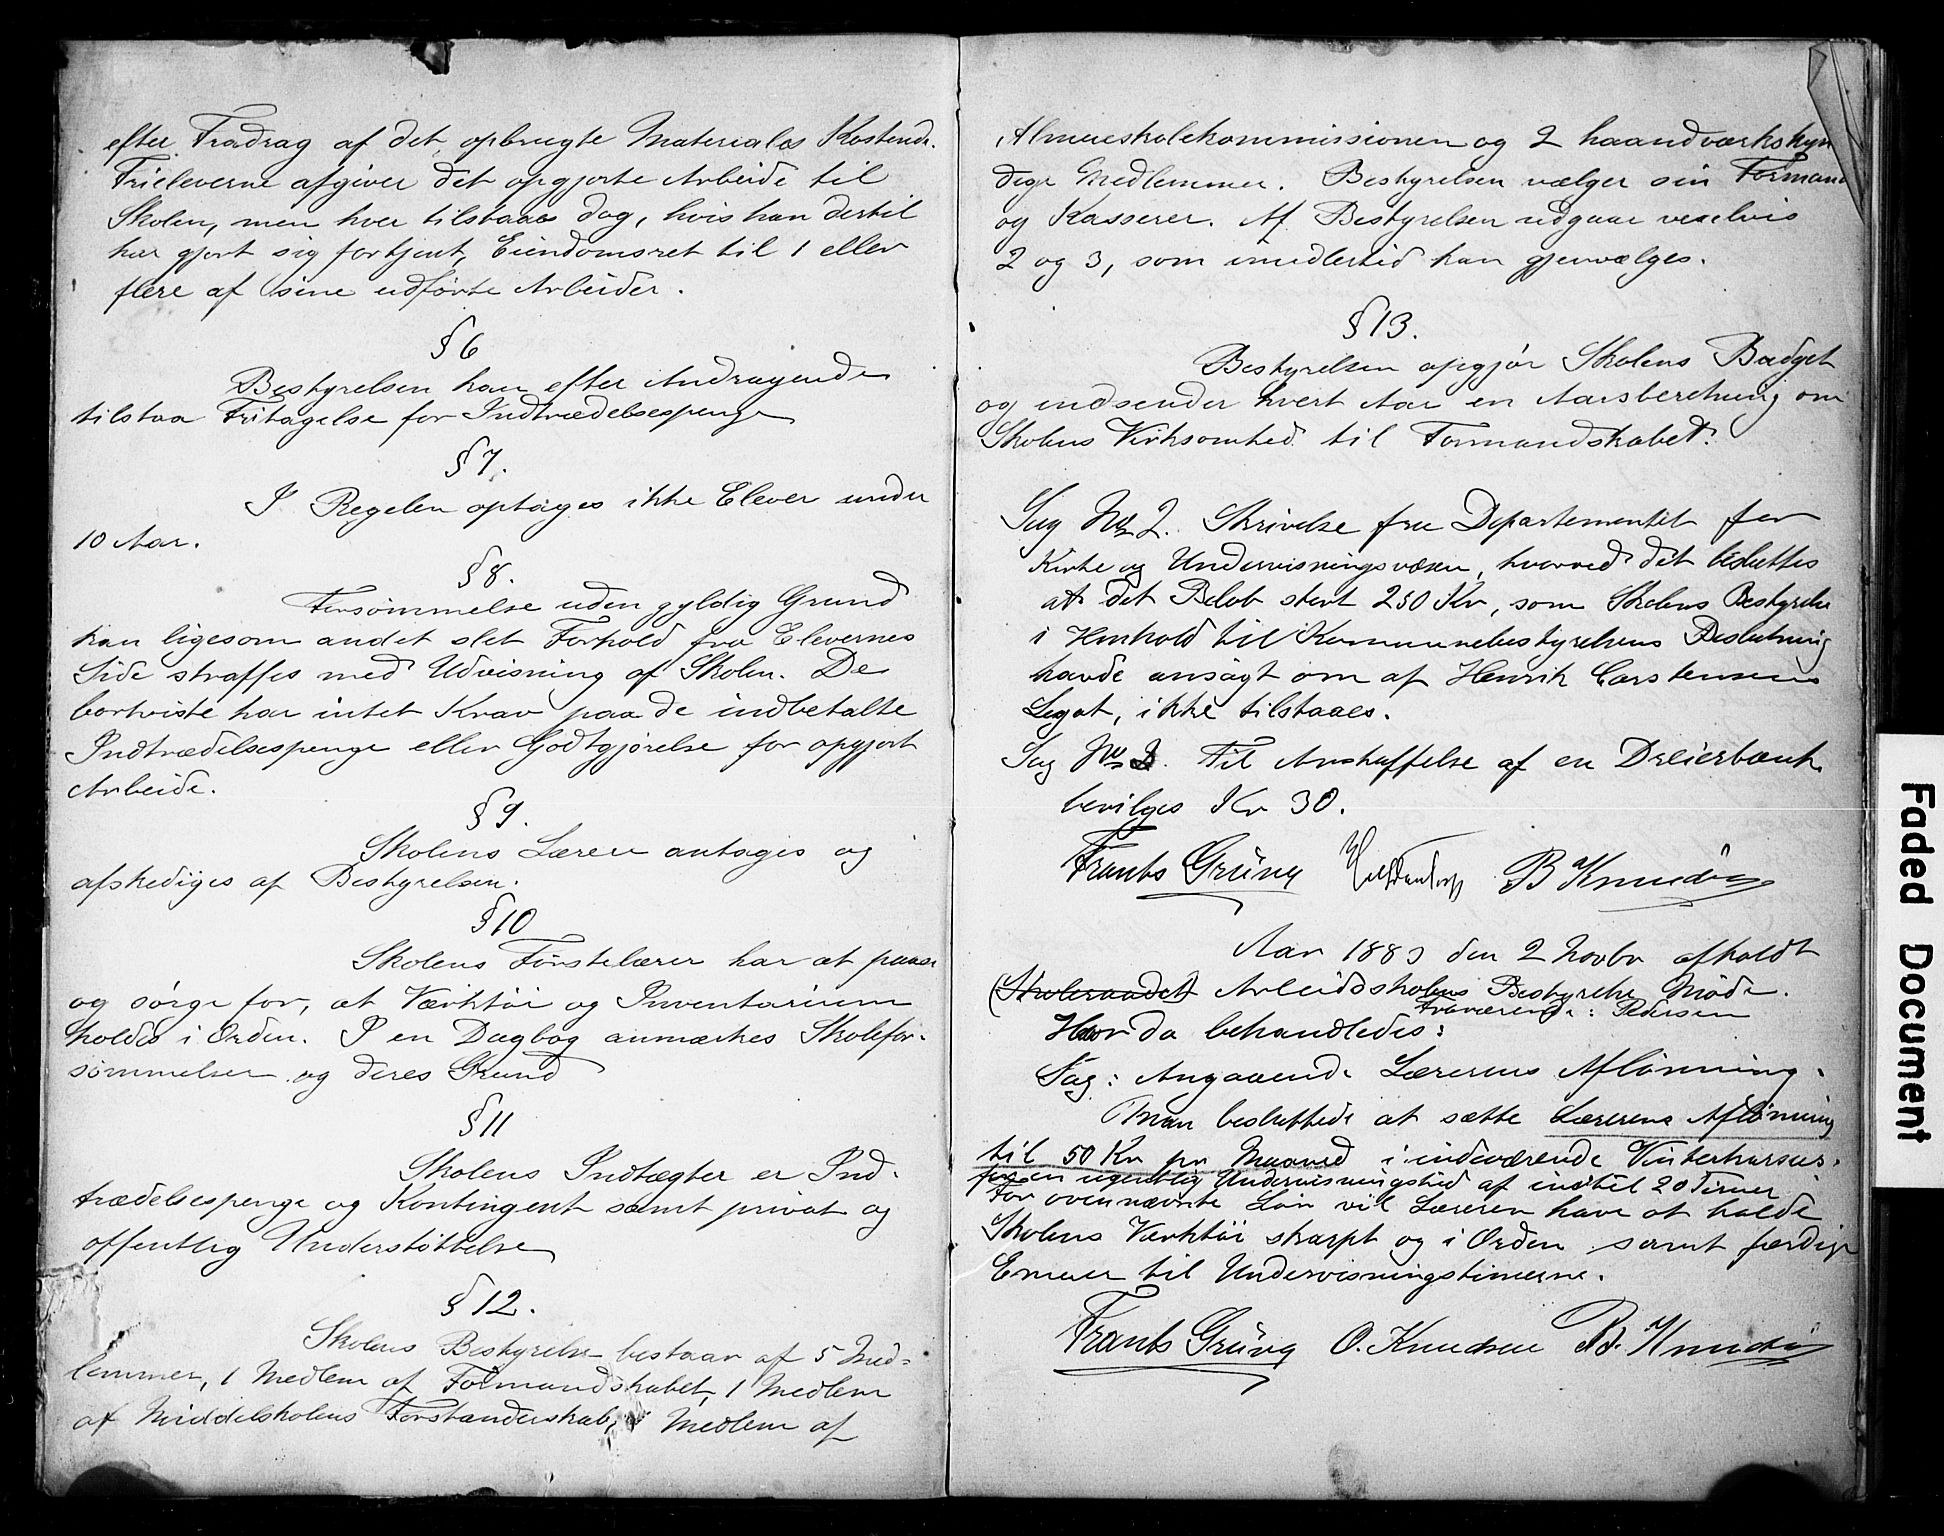 efter Fradrag af det opbrugte Materiales Kostende.
Frieleverne afgiver det opgjorte Arbeide til
Skolen, men hver tilstaaes dog, hvis han dertil
har gjort sig fortjent, Eiendomsret til 1 eller
flere af sine udførte Arbeider.
§ 6
Bestyrelsen kan efter Andragende
tilstaa Fritagelse for Indtrædelsespenge
§ 7.
I Regelen optages ikke Elever under
10 Aar.
§ 8.
Forsømmelse uden gyldig Grund
kan ligesom andet slet Forhold fra Elevernes
Side straffes med Udvisning af Skolen. De
bortviste har intet Krav paa de indbetalte
Indtrædelsespenge eller Godtgjørelse for opgjort
Arbeide.
§ 9.
Skolens Lærere antages og
afskediges af Bestyrelsen.
§ 10
Skolens Førstelærer har at passe
og sørge for, at Værktøi og Inventarium
holdes i Orden. I en Dagbog anmærkes Skolefor-
sømmelser og deres Grund
§ 11
Skolens Indtægter er Ind-
trædelsespenge og Kontingent samt privat og
offentlig Understøttelse
§ 12.
Skolens Bestyrelse bestaar af 5 Med-
lemmer, 1 Medlem af Formandskabet, 1 Medlem
af Middelskolens Forstanderskab, 1 Medlem af
Almueskolekommissionen og 2 haandværkskyn
dige Medlemmer. Bestyrelsen vælger sin Formand
og Kasserer. Af Bestyrelsen udgaar vexelvis
2 og 3, som imidlertid kan gjenvælges.
§ 13.
Bestyrelsen opgjør Skolens Budget
og indsender hvert Aar en Aarsberetning om
Skolens Virksomhed til Formandskabet.
Sag No 2. Skrivelse fra Departementet for
Kirke og Undervisningsvæsen, hvorved det besluttes
at det Beløb stort 250 Kr, som Skolens Bestyrelse
i Henhold til Kommunebestyrelsens Beslutning
havde ansøgt om af Henrik Carstensens
Legat, ikke tilstaaes.
Sag No 3. Til Anskaffelse af en Dreierbænk
bevilges Kr 30.
Frants Grüng B Knudsen
Aar 1883 den 2 Novbr afholdt
(Skoleraadet) Arbeidsskolens Bestyrelse Møde.
Fraværende: Pedersen
Hvor da behandledes:
Sag: Angaaende Lærerens Aflønning.
Man besluttede at sætte Lærerens Aflønning
til 50 Kr pr Maaned i indeværende Vinterkursus.
for en ugentlig Undervisningstid af indtil 20 Timer
For ovennævnte Løn vil Læreren have at holde
Skolens Værktøi skarpt og i Orden samt færdige
Emner til Undervisningstimerne.
Frants Grüng O. Knudsen B. Knudsen
Faded Document